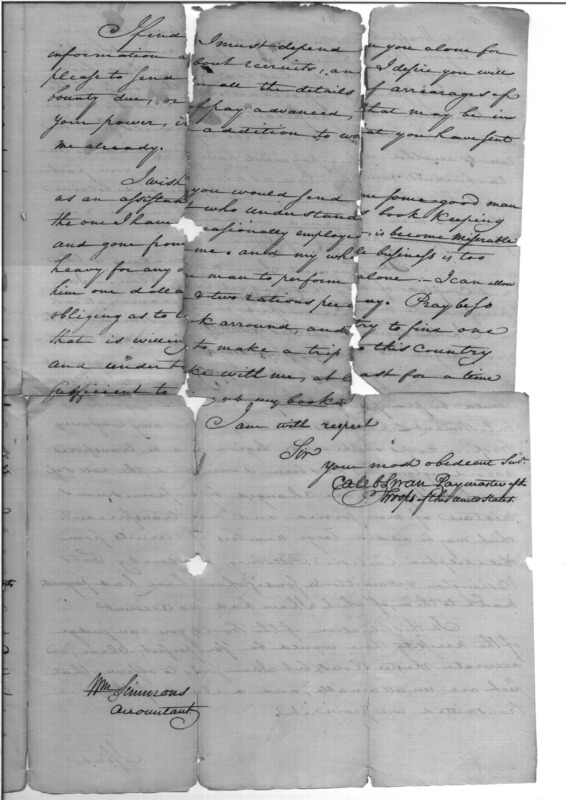 I find I must depend you alone for
information about recruits, an I desire you will
please to send all the details of arrearages of
bounty due, or pay advanced, that may be in
your power, in addition to what you have sent
me already.
I wish you would send me some good man
as an assistant who understands book keeping
the one I have occasionally employed, is become miserable
and gone from me. and my whole business is too
heavy for any one man to perform alone :- I can allow
him one dollar & two rations per day. Pray be so
obliging as to look arround, and try to find one
that is willing to make a trip to this Country
and undertake with me, at least for a time
sufficient to my books
I am with respect
Sir
your most obedient Servt
Caleb Swan Paymaster of the
Troops of the United States.
Wm Simmons
Accountant